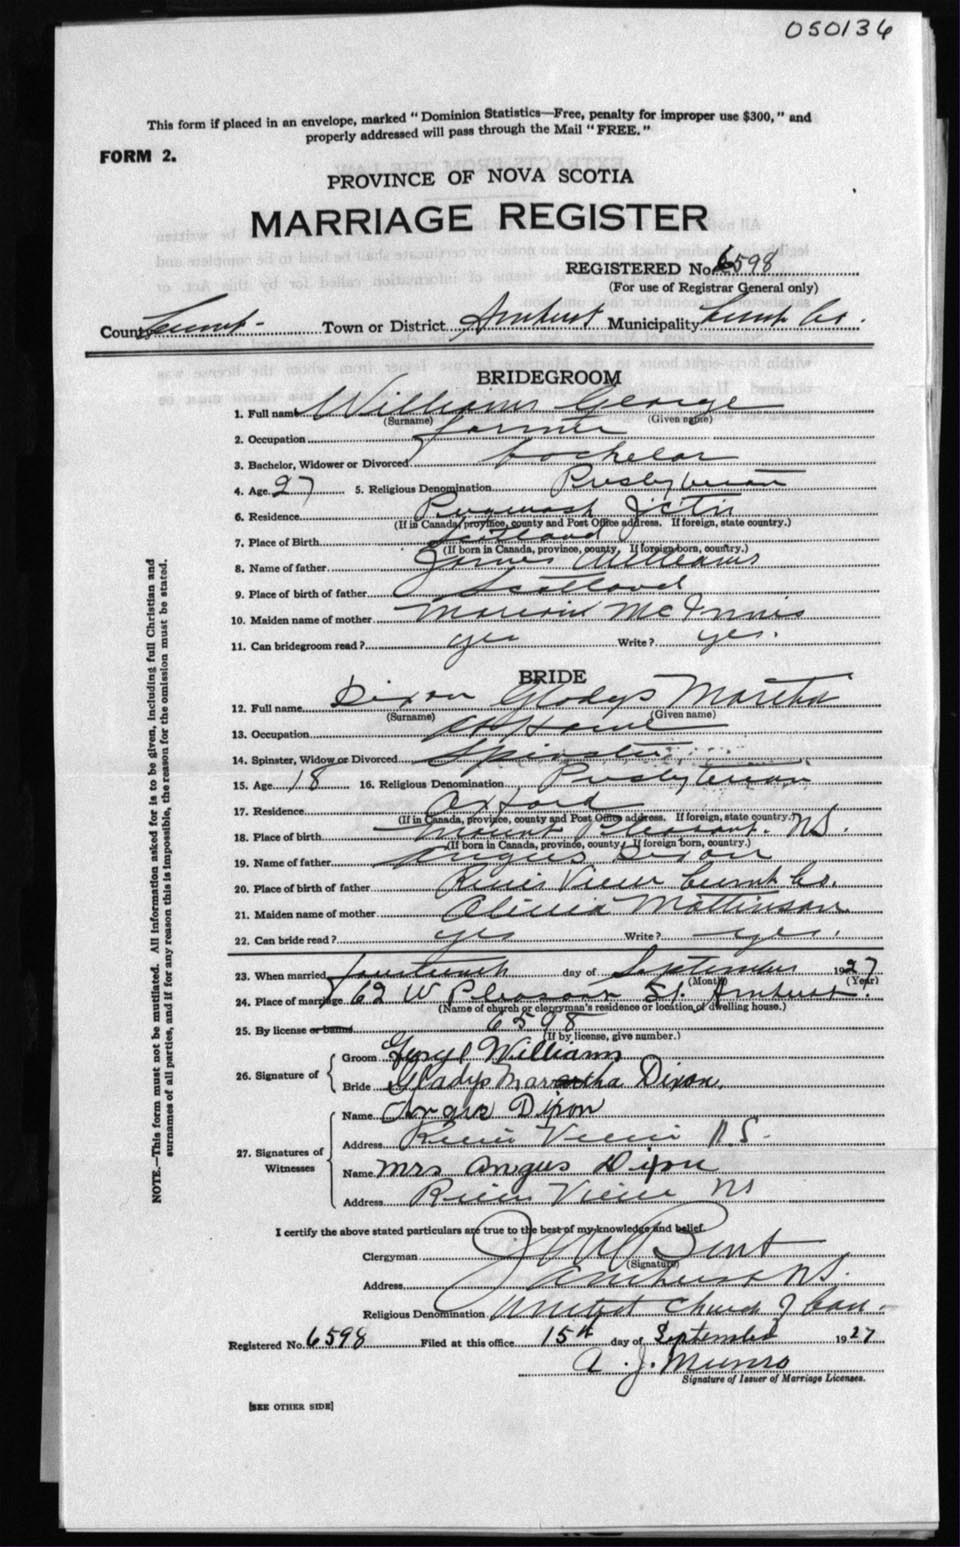 050136
This form if placed in an envelope, marked "Dominion Statistics—Free, penalty for improper use $300," and
properly addressed will pass through the Mail "FREE."
FORM 2.
PROVINCE OF NOVA SCOTIA
MARRIAGE REGISTER
REGISTERED No. 6598
(For use of Registrar General only)
County Town or District Amherst Municipality Cumb Co.
BRIDEGROOM
1. Full name Williams George
(Surname) (Given name)
2. Occupation farmer
3. Bachelor, Widower or Divorced bachelor
4. Age 27 5. Religious Denomination Presbyterian
6. Residence Pugwash Jctn
(If in Canada, province, county and Post Office address. If foreign, state country.)
7. Place of Birth Scotland
(If born in Canada, province, county, If foreign born, country.)
8. Name of father James Williams
9. Place of birth of father Scotland
10. Maiden name of mother Marion McInnis
11. Can bridegroom read? yes Write? yes.
BRIDE
12. Full name Dixon Gladys Martha
(Surname) (Given name)
13. Occupation at Home
14. Spinster, Widow or Divorced Spinster
15. Age 18 16. Religious Denomination Presbyterian
17. Residence Oxford
(If in Canada, province, county and Post Office address. If foreign, state country.)
18. Place of birth Mount Pleasant. NS.
(If born in Canada, province, county, If foreign born, country.)
19. Name of father Angus Dixon
20. Place of birth of father River View Cumb Co.
21. Maiden name of mother Olivia Mattinson
22. Can bride read? yes Write? yes.
23. When married fourteenth day of September 1927
(Month) (Year)
24. Place of marriage 62 W Pleasant St. Amherst.
(Name of church or clergyman's residence or location of dwelling house.)
25. By license or banns 6598
(If by license, give number.)
26. Signature of
Groom Williams
Bride Gladys Dixon
27. Signatures of Witnesses
Name Dixon
Address River View N.S.
Name Mrs Angus Dixon
Address River View NS
I certify the above stated particulars are true to the best of my knowledge and belief.
Clergyman Bent
(Signature)
Address Amherst NS.
Religious Denomination United Church of Can.
Registered No. 6598 Filed at this office 15th day of September 1927
A. J. Munro
Signature of Issuer of Marriage Licenses.
[SEE OTHER SIDE]
NOTE.—This form must not be mutilated. All information asked for is to be given, including full Christian and
surnames of all parties, and if for any reason this is impossible, the reason for the omission must be stated.